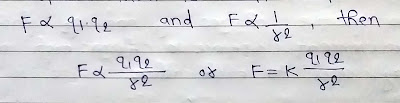 F ∝ q₁.q₂ and F ∝ 1/r2, then
F ∝ q₁q₂/r2 or F = K q₁q₂/r2